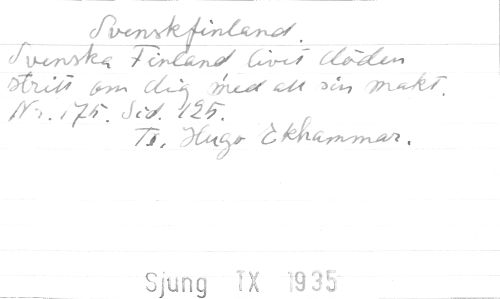 Svenskfinland.
Svenska Finland livet döden
stritt om dig med all sin makt.
Nr. 175. Sid. 125.
Hugo Ekhammar.
Sjung IX 1935